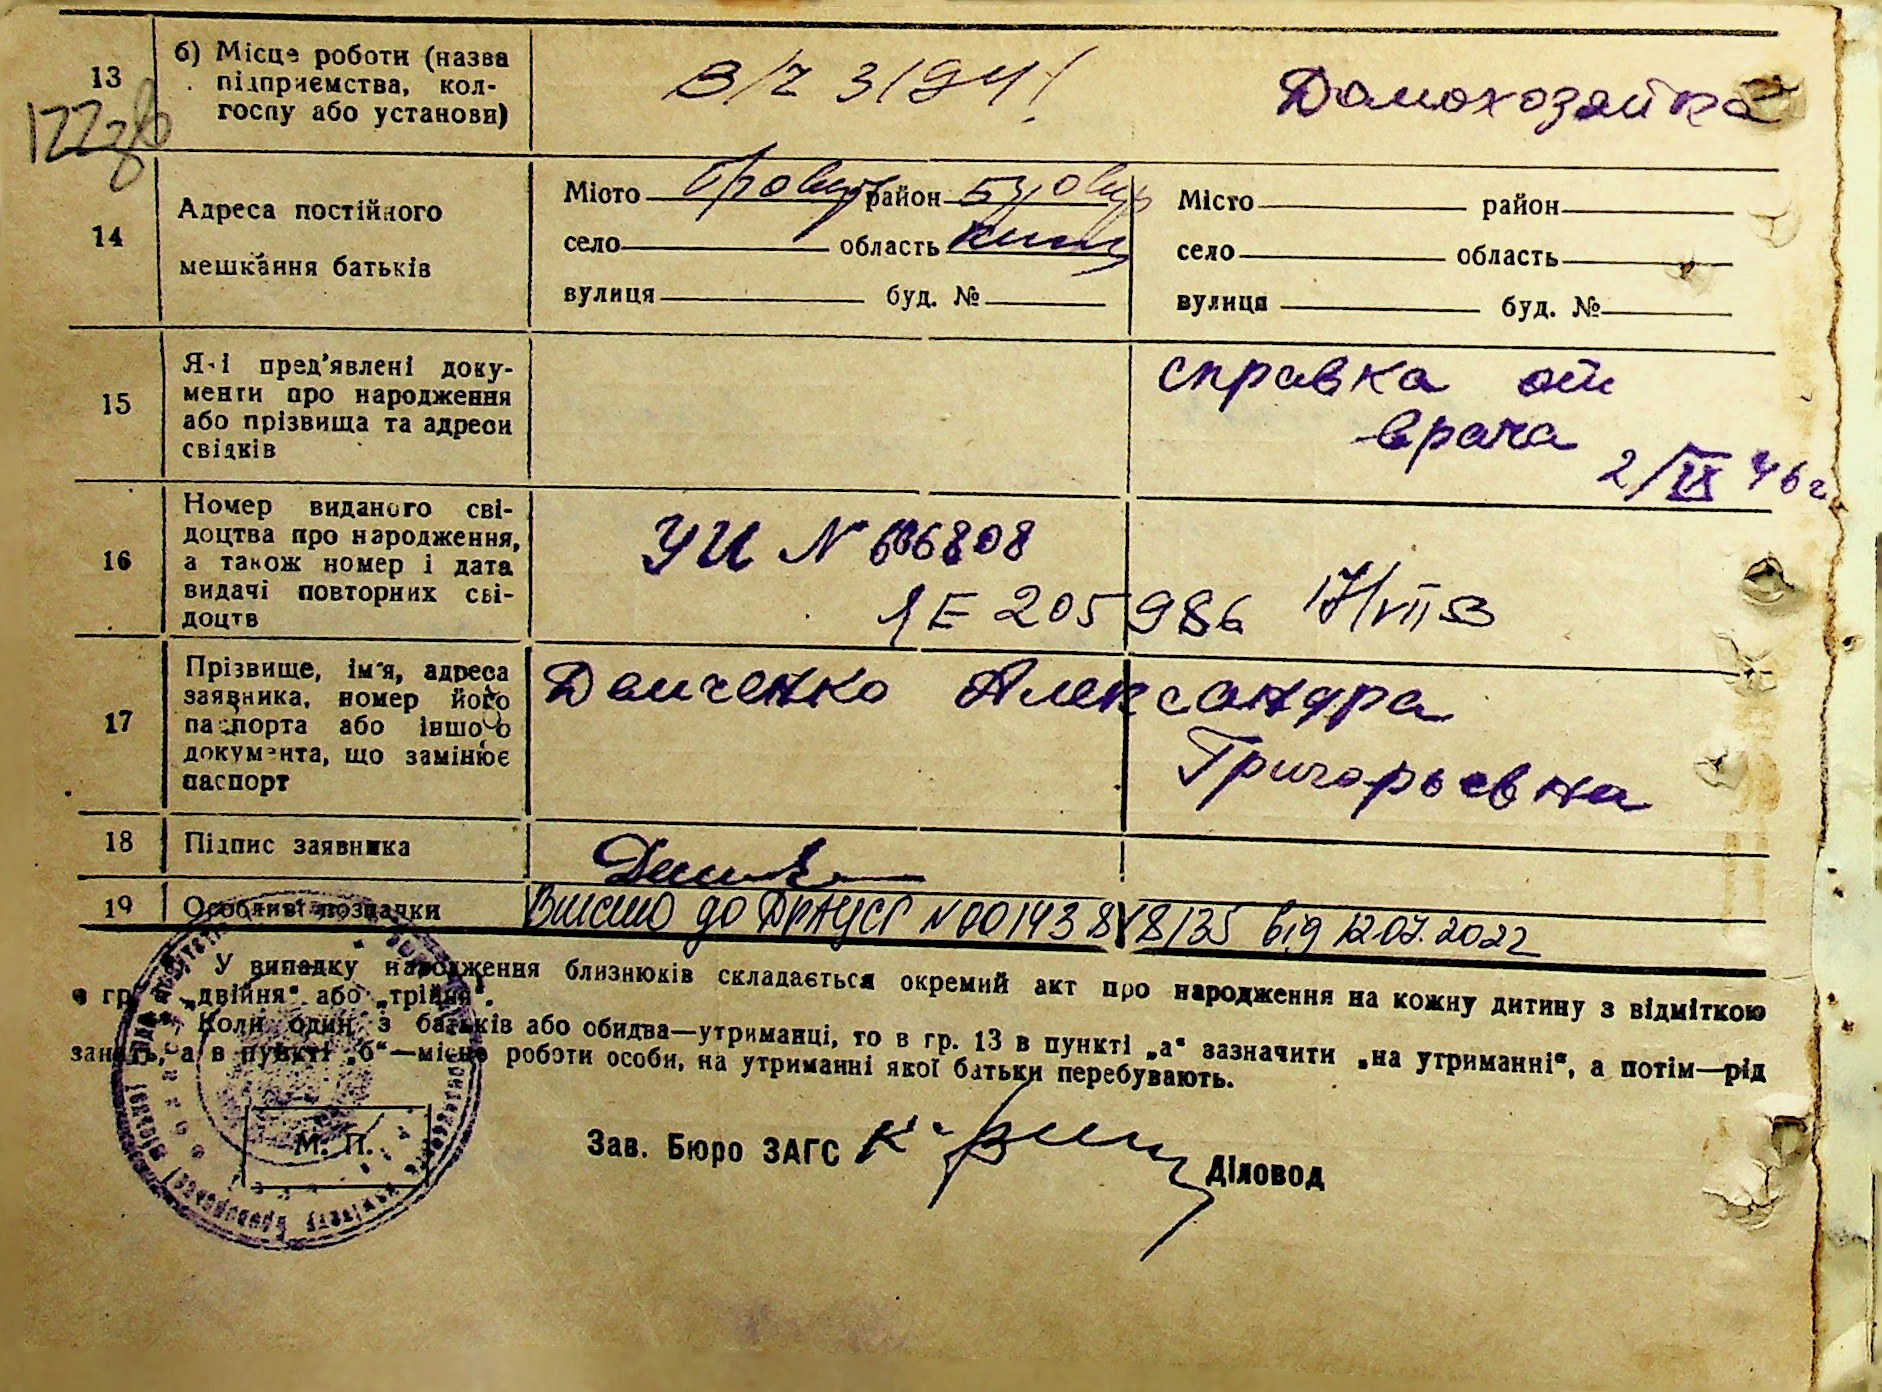 13
б) Місце роботи (назва
підприємства, кол-
госпу або установи)
В/Ч 31941
Домохозяйка
14
Адреса постійного
мешкання батьків
Місто район
село область
вулиця буд. №
Місто район
село область
вулиця буд. №
15
Які пред'явлені доку-
менти про народження
або прізвища та адреси
свідків
справка от
врача
2/IX 46 г
16
Номер виданого сві-
доцтва про народження,
а також номер і дата
видачі повторних сві-
доцтв
УИ № 686808
1Е 205986 17/VII 53
17
Прізвище, ім'я, адреса
заявника, номер його
паспорта або іншого
документа, що замінює
паспорт
Данченко Александра
Григорьевна
18
Підпис заявника
19
Особливі позначки
Внесено до ДРАЦСГ №00143848135 від 12.07.2022
У випадку народження близнюків складається окремий акт про народження на кожну дитину з відміткою
в гр. „двійня“ або „трійня“.
Коли один з батьків або обидва—утриманці, то в гр. 13 в пункті „а“ зазначити „на утриманні“, а потім—рід
занять, а в пункті „б“—місце роботи особи, на утриманні якої батьки перебувають.
М. П.
Зав. Бюро ЗАГС
Діловод